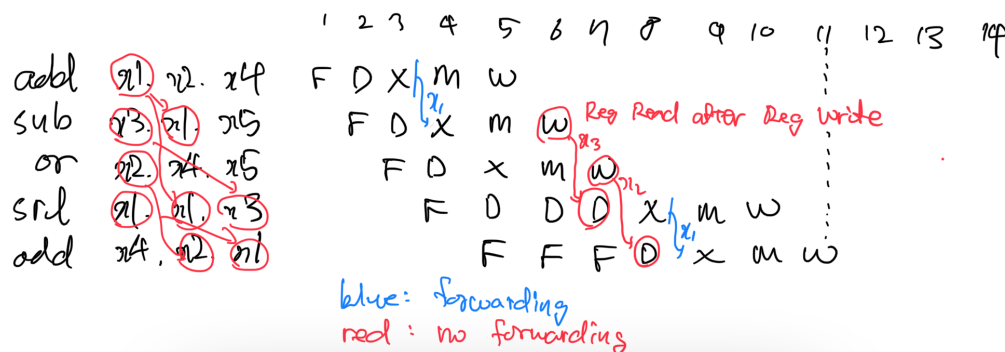 1 2 3 4 5 6 7 8 9 10 11 12 13 14
add x1. x2. x4 F D X M W
x1
sub x3. x1. x5 F D X M W Reg Read after Reg write
x3
or x2. x4. x5 F D X M W
x2
srl x1. x1. x3 F D D D X M W
x1
add x4. x2. x1 F F F D X M W
blue: forwarding
red: no forwarding